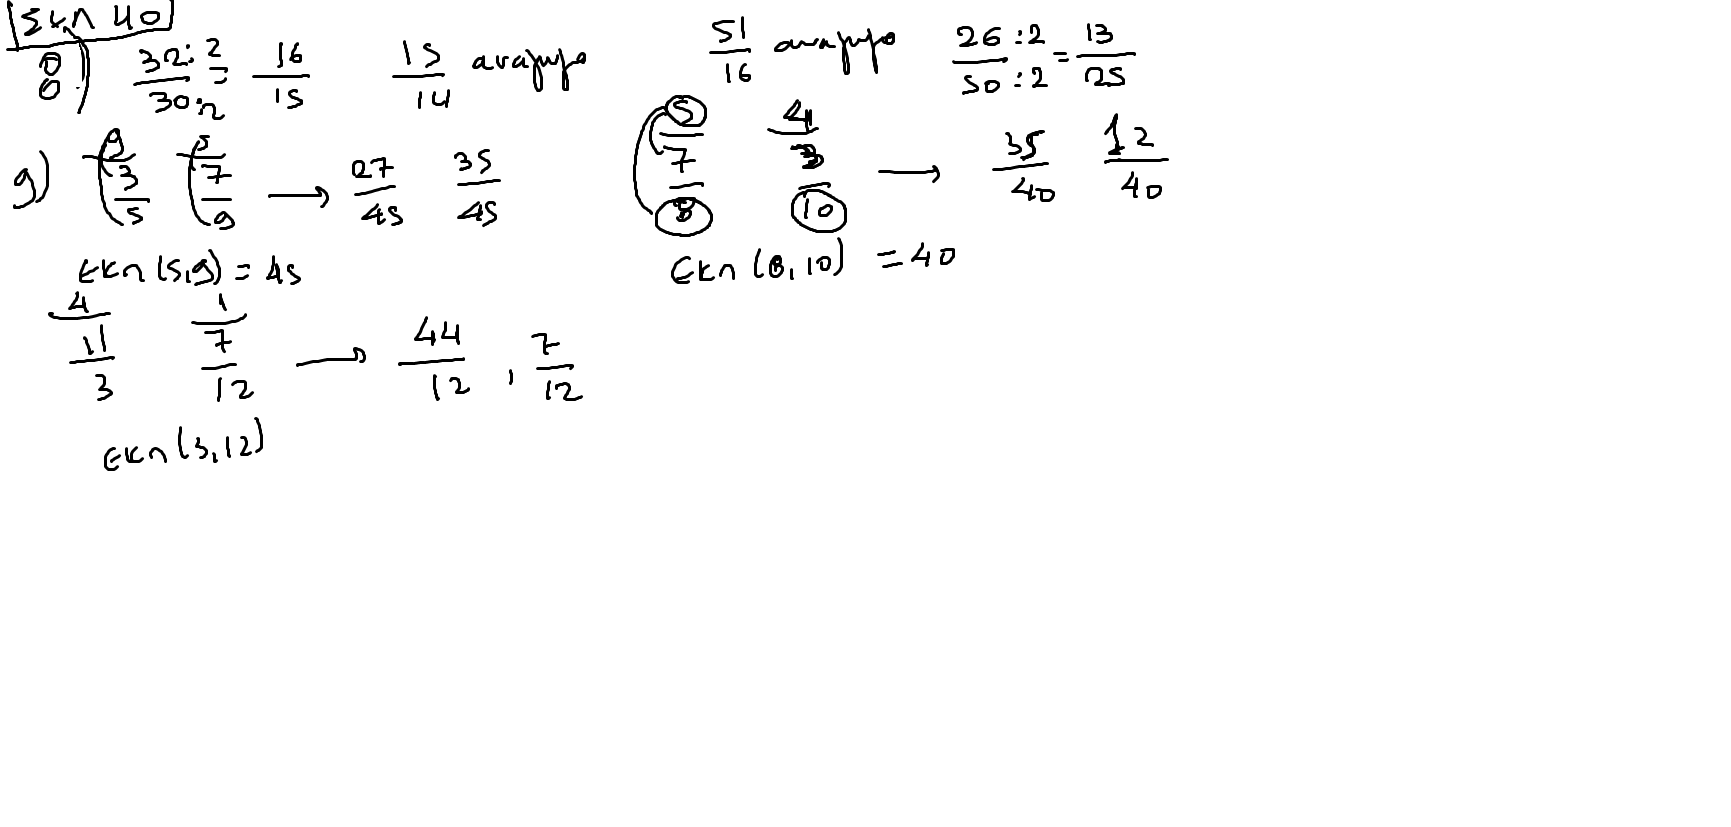 Σελ 40
8) 32:2/30:2 = 16/15 15/14 αναγωγο 51/16 αναγωγο 26:2/50:2 = 13/25
9) 9 3/5 5 7/9 → 27/45 35/45 5 7/8 4 3/10 → 35/40 12/40
ΕΚΠ (5,9) = 45 ΕΚΠ (8,10) = 40
4 11/3 1 7/12 → 44/12 , 7/12
ΕΚΠ (3,12)